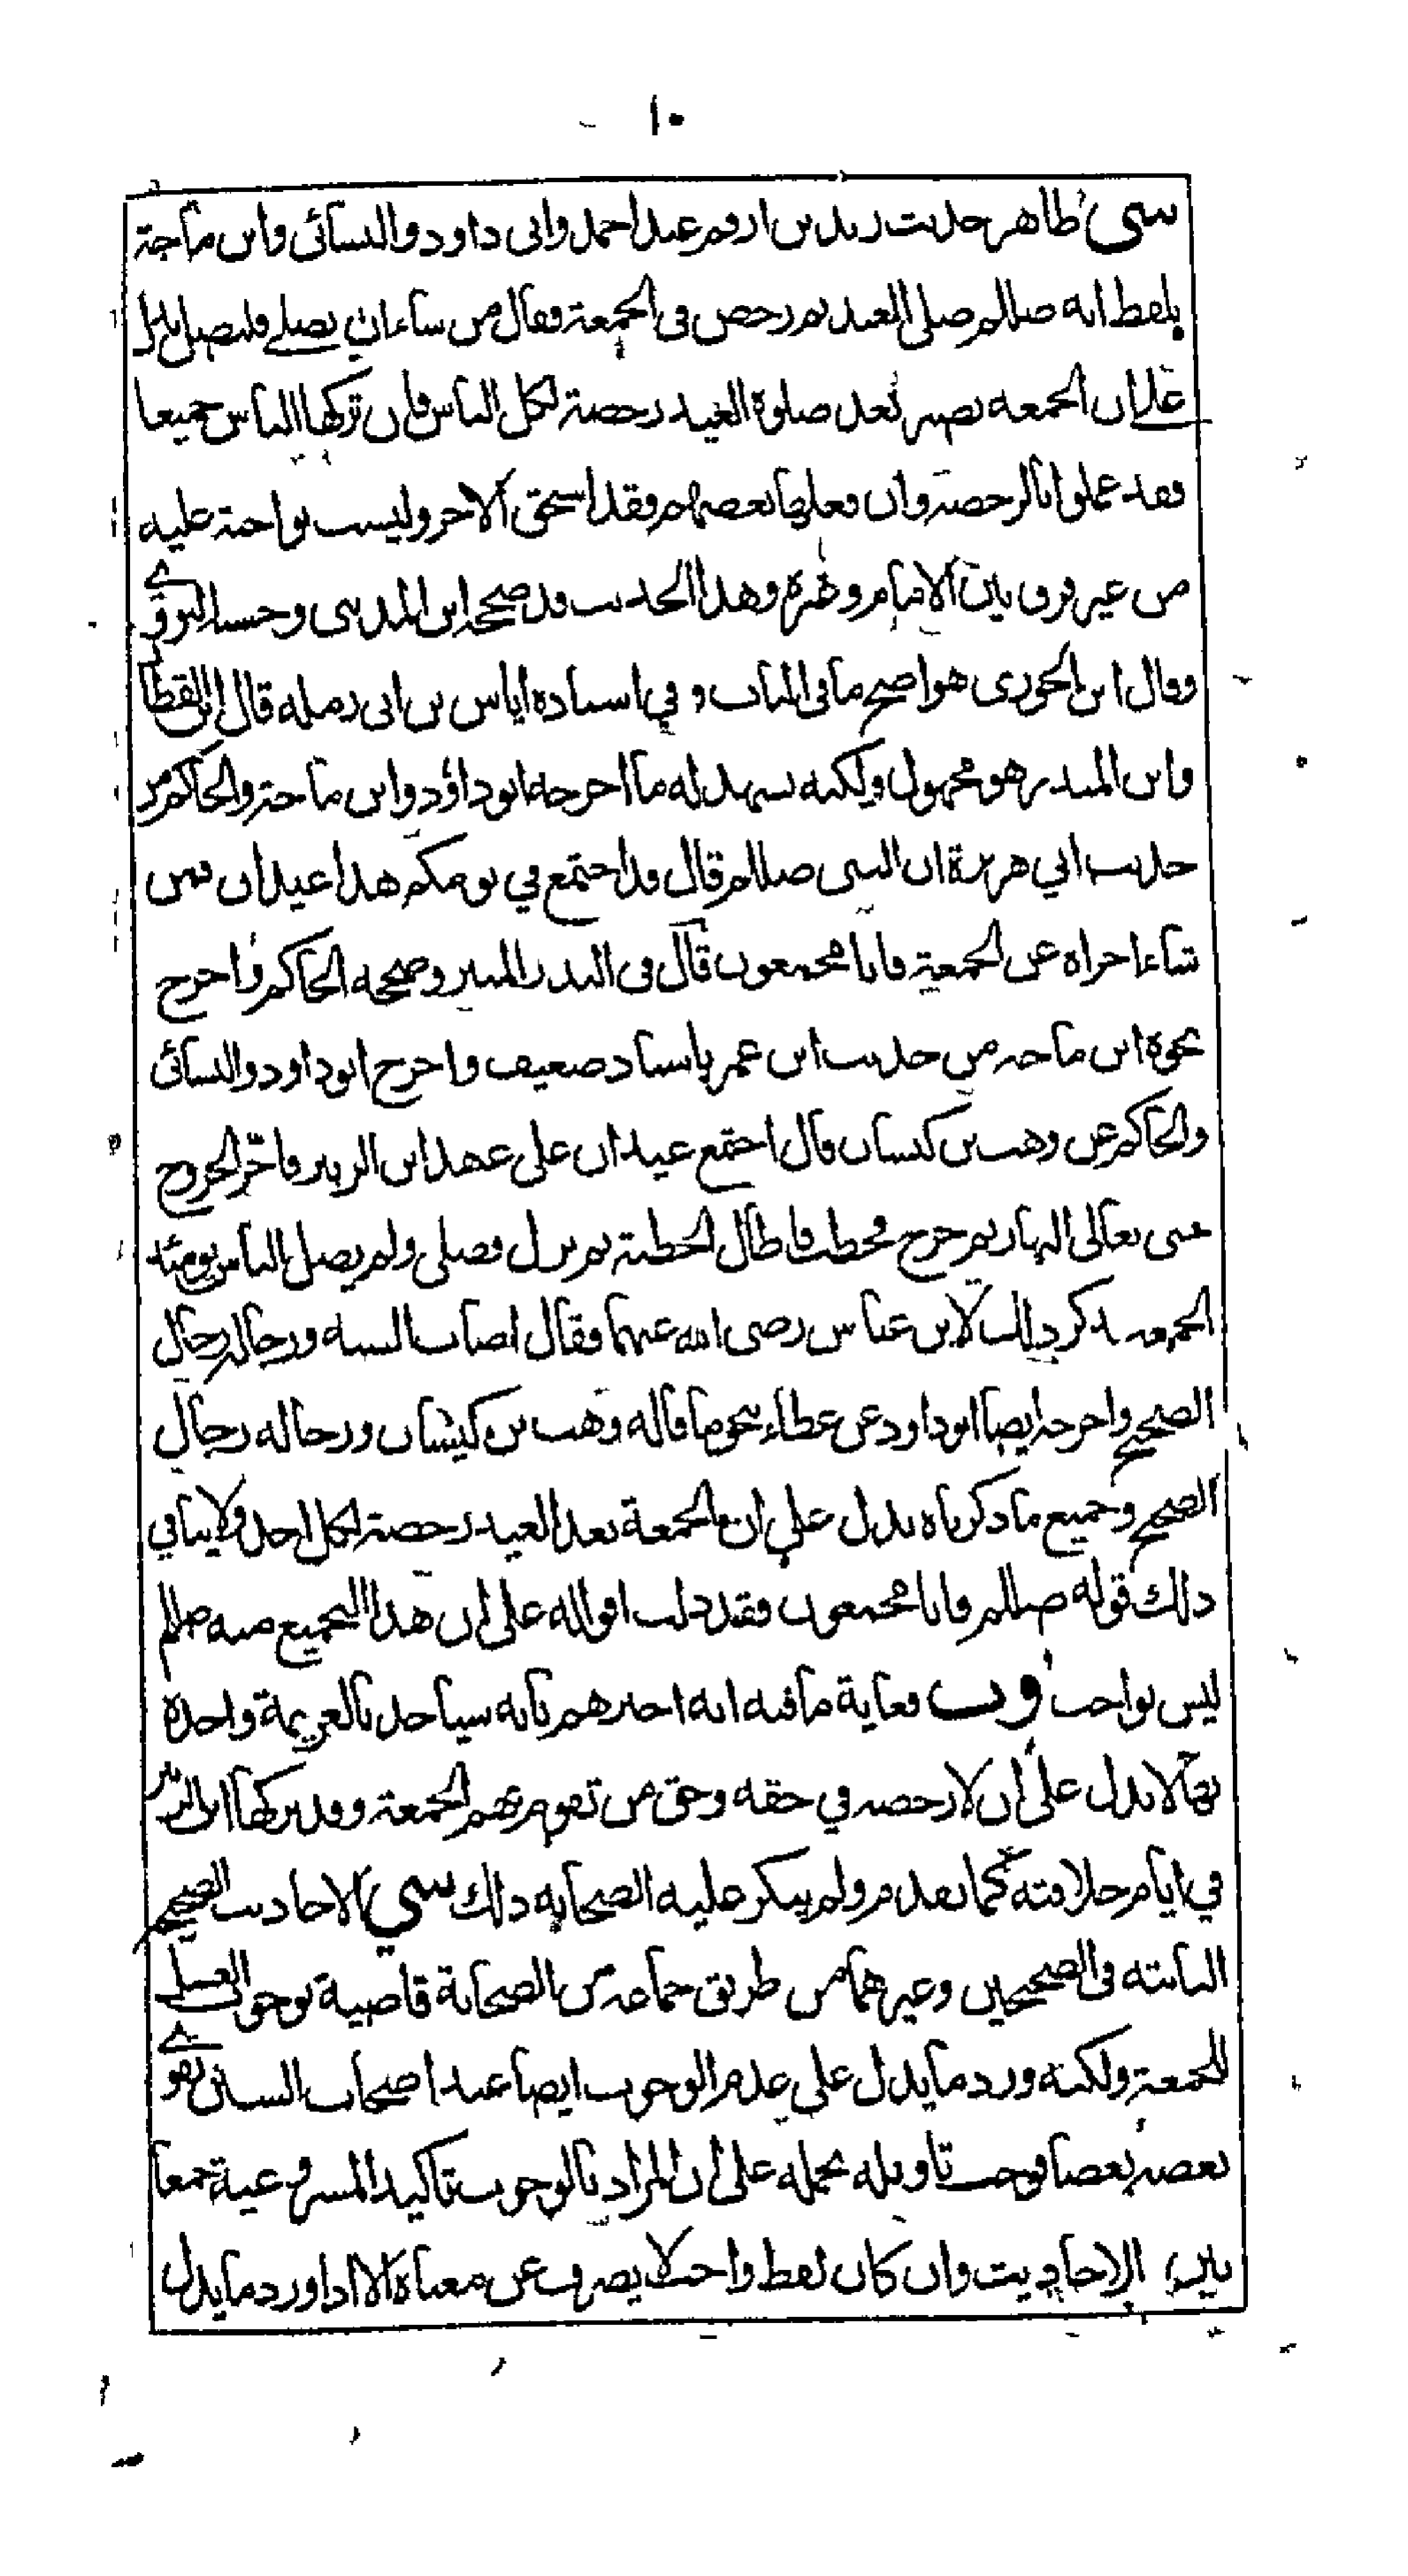 ١٠
شيء ظاهر حديث زيد بن ارقم عند احمد وابي داود والنسائي وابن ماجة
بلفظ انه صللم صلى العيد ثم رخص في الجمعة فقال من شاء ان يصلي فليصل يدل
على ان الجمعه تصير بعد صلوة العيد رخصة لكل الناس فان تركها الناس جميعا
فقد عملوا بالرخصة وان فعلها بعضهم فقد استحق الاجر وليست بواجبة عليه
من غير فرق بين الامام وغيره وهذا الحديث قد صححه ابن المديني وحسنه النووي
وقال ابن الجوزي هو اصح ما في الباب وفي اسناده اياس بن ابي رمله قال ابن القطان
وابن المنذر هو مجهول ولكنه يشهد له ما اخرجه ابو داؤد وابن ماجة والحاكم من
حديث ابي هريرة ان النبي صللم قال قد اجتمع في يومكم هذا عيدان فمن
شاء اجزاه عن الجمعة فانا مجمعون قال في البدر المنير وصححه الحاكم واخرج
نحوه ابن ماجه من حديث ابن عمر باسناد ضعيف واخرج ابو داود والنسائي
والحاكم عن وهب بن كيسان قال اجتمع عيدان على عهد ابن الزبير فاخّر الخروج
حتى تعالى النهار ثم خرج فخطب فاطال الخطبة ثم نزل فصلى ولم يصل الناس يومئذ
الجمعه فذكر ذلك لابن عباس رضي الله عنهما فقال اصاب السنه ورجاله رجال
الصحيح واخرجه ايضا ابو داود عن عطاء بنحو ما قاله وهب بن كيسان ورجاله رجال
الصحيح وجميع ما ذكرناه يدل على ان الجمعة بعد العيد رخصة لكل احد ولا ينافي
ذلك قوله صللم فانا مجمعون فقد دلت اقواله على ان هذا التجميع منه صللم
ليس بواجب وب فغاية ما فيه انه اخبرهم بانه سياخذ بالعزيمة واخذه
بها لا يدل على ان لا رخصه في حقه وحق من تقوم بهم الجمعة وقد تركها ابن الزبير
في ايام خلافته كما تقدم ولم ينكر عليه الصحابه ذلك شيء الاحاديث الصحيحه
الثابته في الصحيحين وغيرهما من طريق جماعة من الصحابة قاضية بوجوب الغسل
للجمعة ولكنه ورد ما يدل على عدم الوجوب ايضا عند اصحاب السنن يقوي
بعضه بعضا فوجب تاويله بحمله على ان المراد بالوجوب تاكيد المشروعية جمعا
بين الاحاديث وان كان لفظ واجب لا يصرف عن معناه الا اذا ورد ما يدل